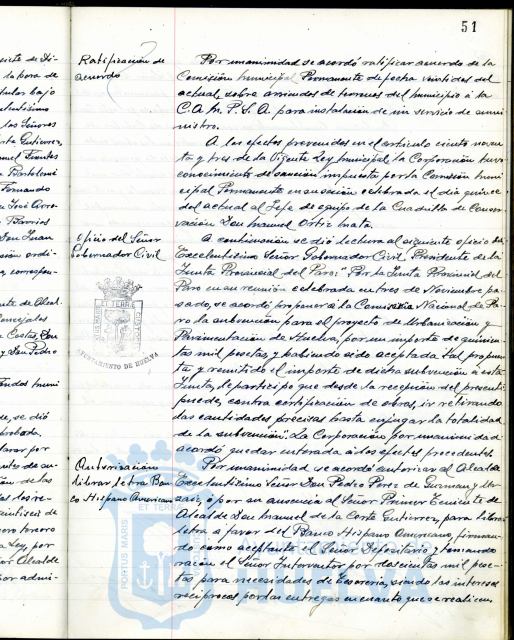 51
Ratificación de
acuerdo
Por unanimidad se acordó ratificar acuerdo de la
Comisión municipal Permanente de fecha veintidos del
actual, sobre arriendos de terrenos del municipio á la
C.A.M.P.S.A. para instalación de un servicio de sumi
nistro.
A los efectos prevenidos en el artículo ciento noven
ta y tres de la Vigente Ley municipal la Corporación tuvo
conocimiento de sanción impuesta por la Comisión muni
cipal Permanente en su sesión celebrada el día quince
del actual al Jefe de equipo de la Cuadrilla de Conser
vación Don manuel Ortiz mata.
Oficio del Señor
Gobernador Civil
A continuación se dió lectura al siguiente oficio del
Excelentísimo Señor Gobernador Civil, Presidente de la
Junta Provincial del Paro: "Por la Junta Provincial del
Paro en su reunión celebrada en tres de Noviembre pa
sado, se acordó proponer á la Comisión Nacional de Pa
ro la subvención para el proyecto de Urbanización y
Pavimentación de Huelva, por un importe de quinien
tas mil pesetas y habiendo sido aceptada tal propues
ta y remitido el importe de dicha subvención á esta
Junta, le participo que desde la recepción del presente
puede, contra certificación de obras, ir retirando
las cantidades precisas hasta enjugar la totalidad
de la subvención. La Corporación por unanimidad
acordó quedar enterada á los efectos precedentes
AYUNTAMIENTO DE HUELVA
Autorización
librar letra Ban
co Hispano Americano
Por unanimidad se acordó autorizar al Alcalde
Excelentísimo Señor Don Pedro Pérez de Guzmán y Ur
zaiz, ó por su ausencia al Señor Primer Teniente de
Alcalde Don manuel de la Corte Gutierrez, para librar
letra á favor del Banco Hispano Americano, firman
do como aceptante el Señor Depositario y tomando
razón el Señor Interventor por doscientas mil pese
tas para necesidades de Tesorería, siendo los intereses
recíprocos por las entregas en cuanto que se realicen
PORTUS MARIS
ET TERRAE